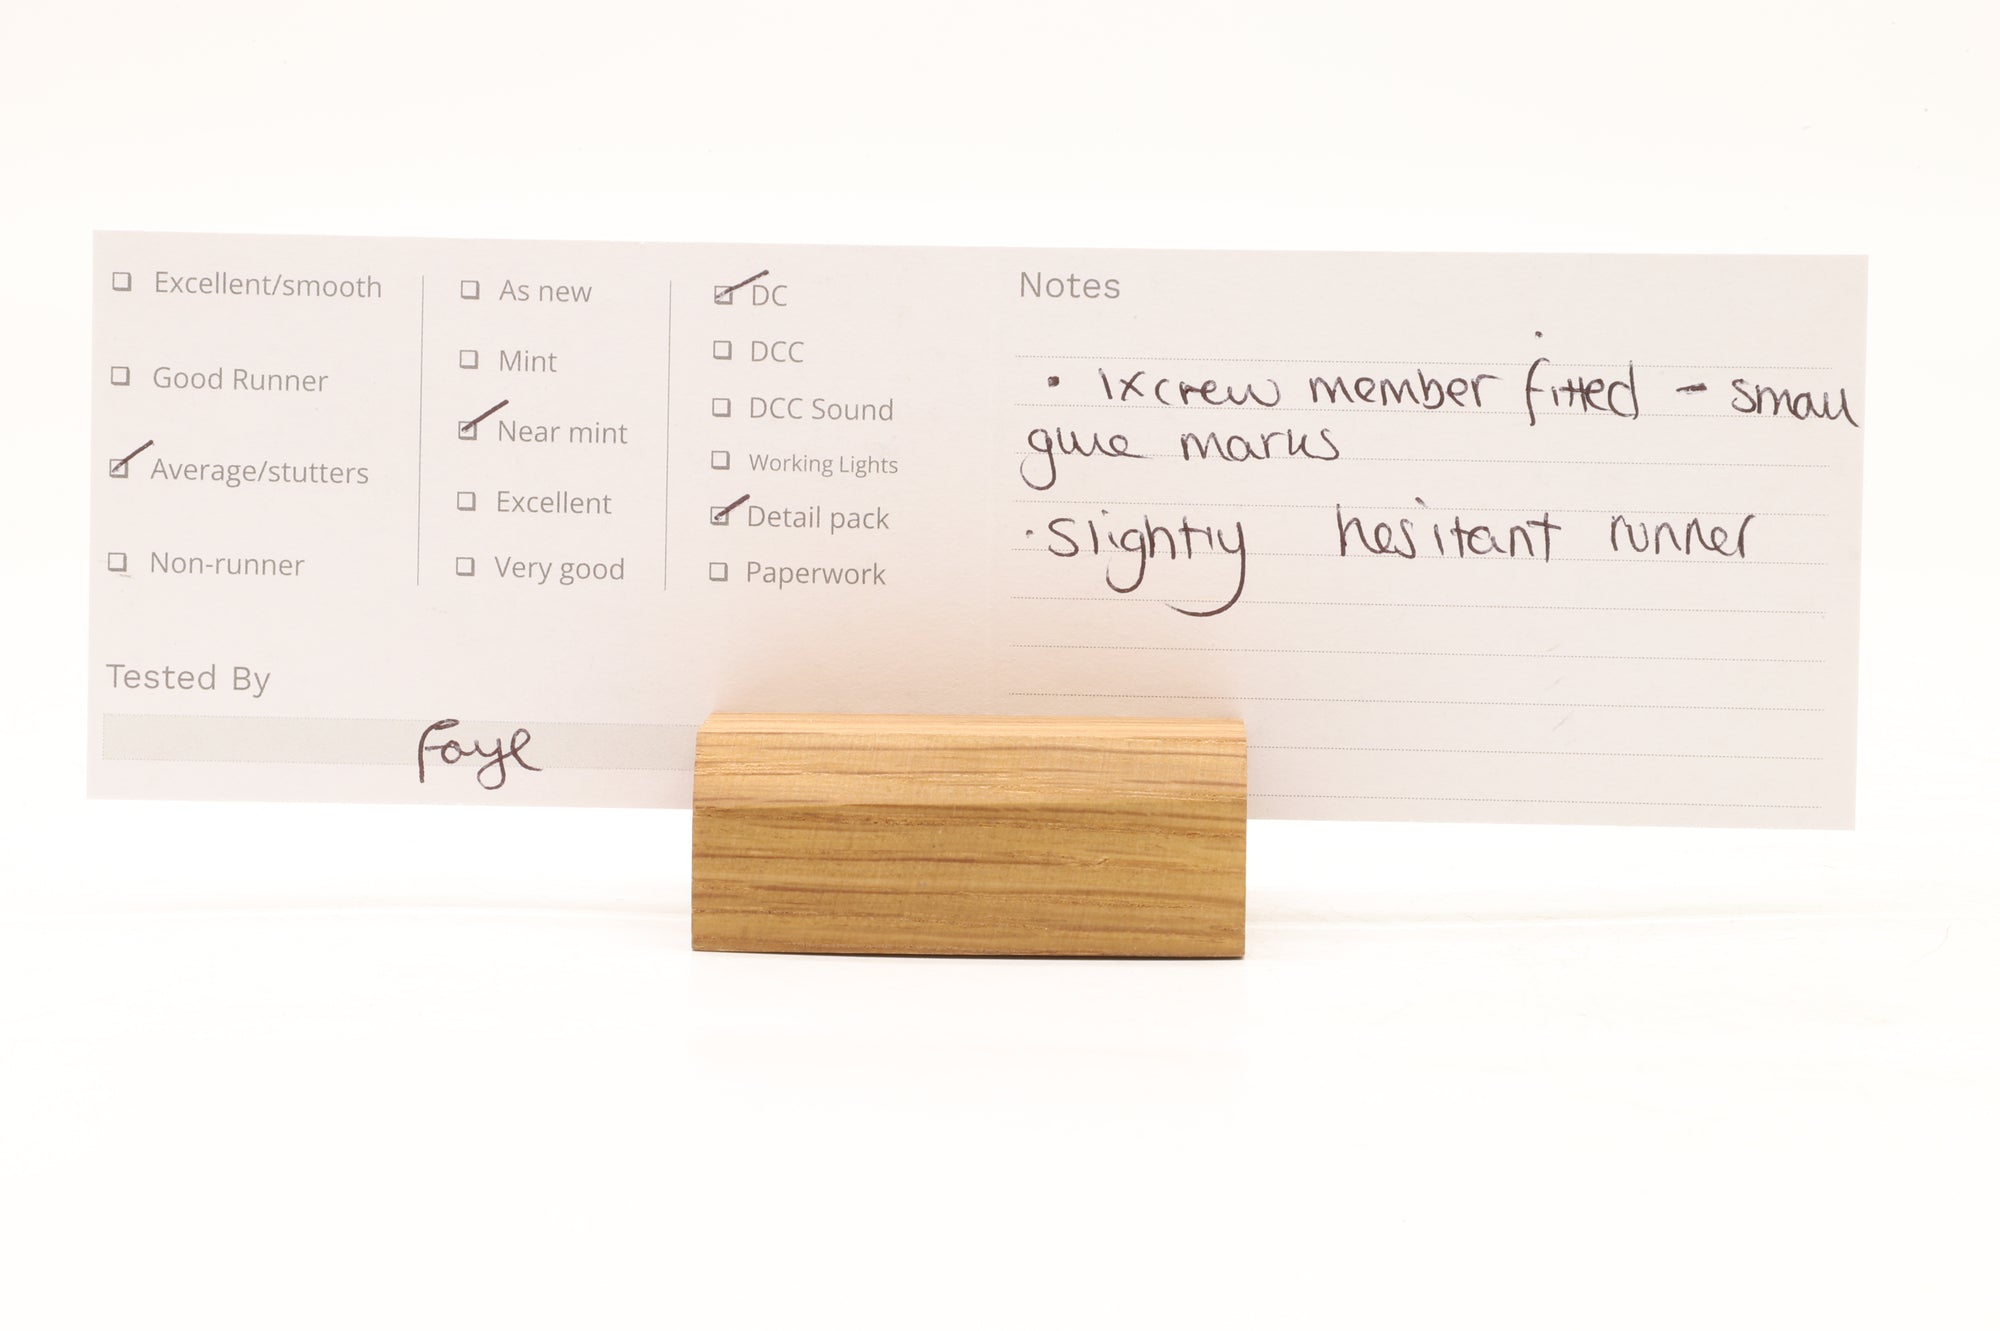 Excellent/smooth
Good Runner
Average/stutters
Non-runner
As new
Mint
Near mint
Excellent
Very good
DC
DCC
DCC Sound
Working Lights
Detail pack
Paperwork
Tested By
Faye
Notes
• 1x crew member fitted - small
glue marks
• Slightly hesitant runner